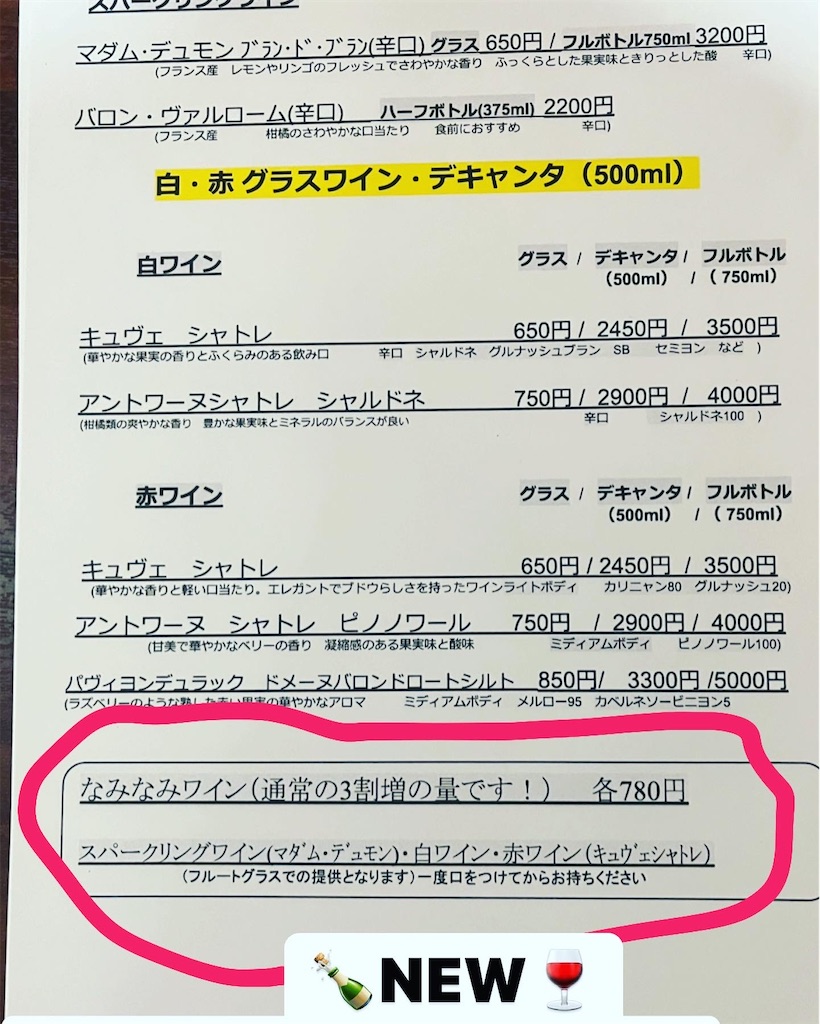 スパークリングワイン
マダム･デュモン ブラン･ド･ブラン(辛口) グラス 650円 / フルボトル750ml 3200円
(フランス産 レモンやリンゴのフレッシュでさわやかな香り ふっくらとした果実味ときりっとした酸 辛口)
バロン・ヴァルローム(辛口) ハーフボトル(375ml) 2200円
(フランス産 柑橘のさわやかな口当たり 食前におすすめ 辛口)
白・赤 グラスワイン・デキャンタ（500ml）
白ワイン グラス / デキャンタ / フルボトル
（500ml） / （ 750ml）
キュヴェ シャトレ 650円 / 2450円 / 3500円
(華やかな果実の香りとふくらみのある飲み口 辛口 シャルドネ グルナッシュブラン SB セミヨン など )
アントワーヌシャトレ シャルドネ 750円 / 2900円 / 4000円
(柑橘類の爽やかな香り 豊かな果実味とミネラルのバランスが良い 辛口 シャルドネ100 )
赤ワイン グラス / デキャンタ / フルボトル
（500ml） / （ 750ml）
キュヴェ シャトレ 650円 / 2450円 / 3500円
(華やかな香りと軽い口当たり。エレガントでブドウらしさを持ったワインライトボディ カリニャン80 グルナッシュ20)
アントワーヌ シャトレ ピノノワール 750円 / 2900円 / 4000円
(甘美で華やかなベリーの香り 凝縮感のある果実味と酸味 ミディアムボディ ピノノワール100)
パヴィヨンデュラック ドメーヌバロンドロートシルト 850円/ 3300円 /5000円
(ラズベリーのような熟した赤い果実の華やかなアロマ ミディアムボディ メルロー95 カベルネソービニヨン5
なみなみワイン（通常の3割増の量です！） 各780円
スパークリングワイン(マダム･デュモン)・白ワイン・赤ワイン（キュヴェシャトレ）
（フルートグラスでの提供となります）一度口をつけてからお持ちください
🍾NEW🍷